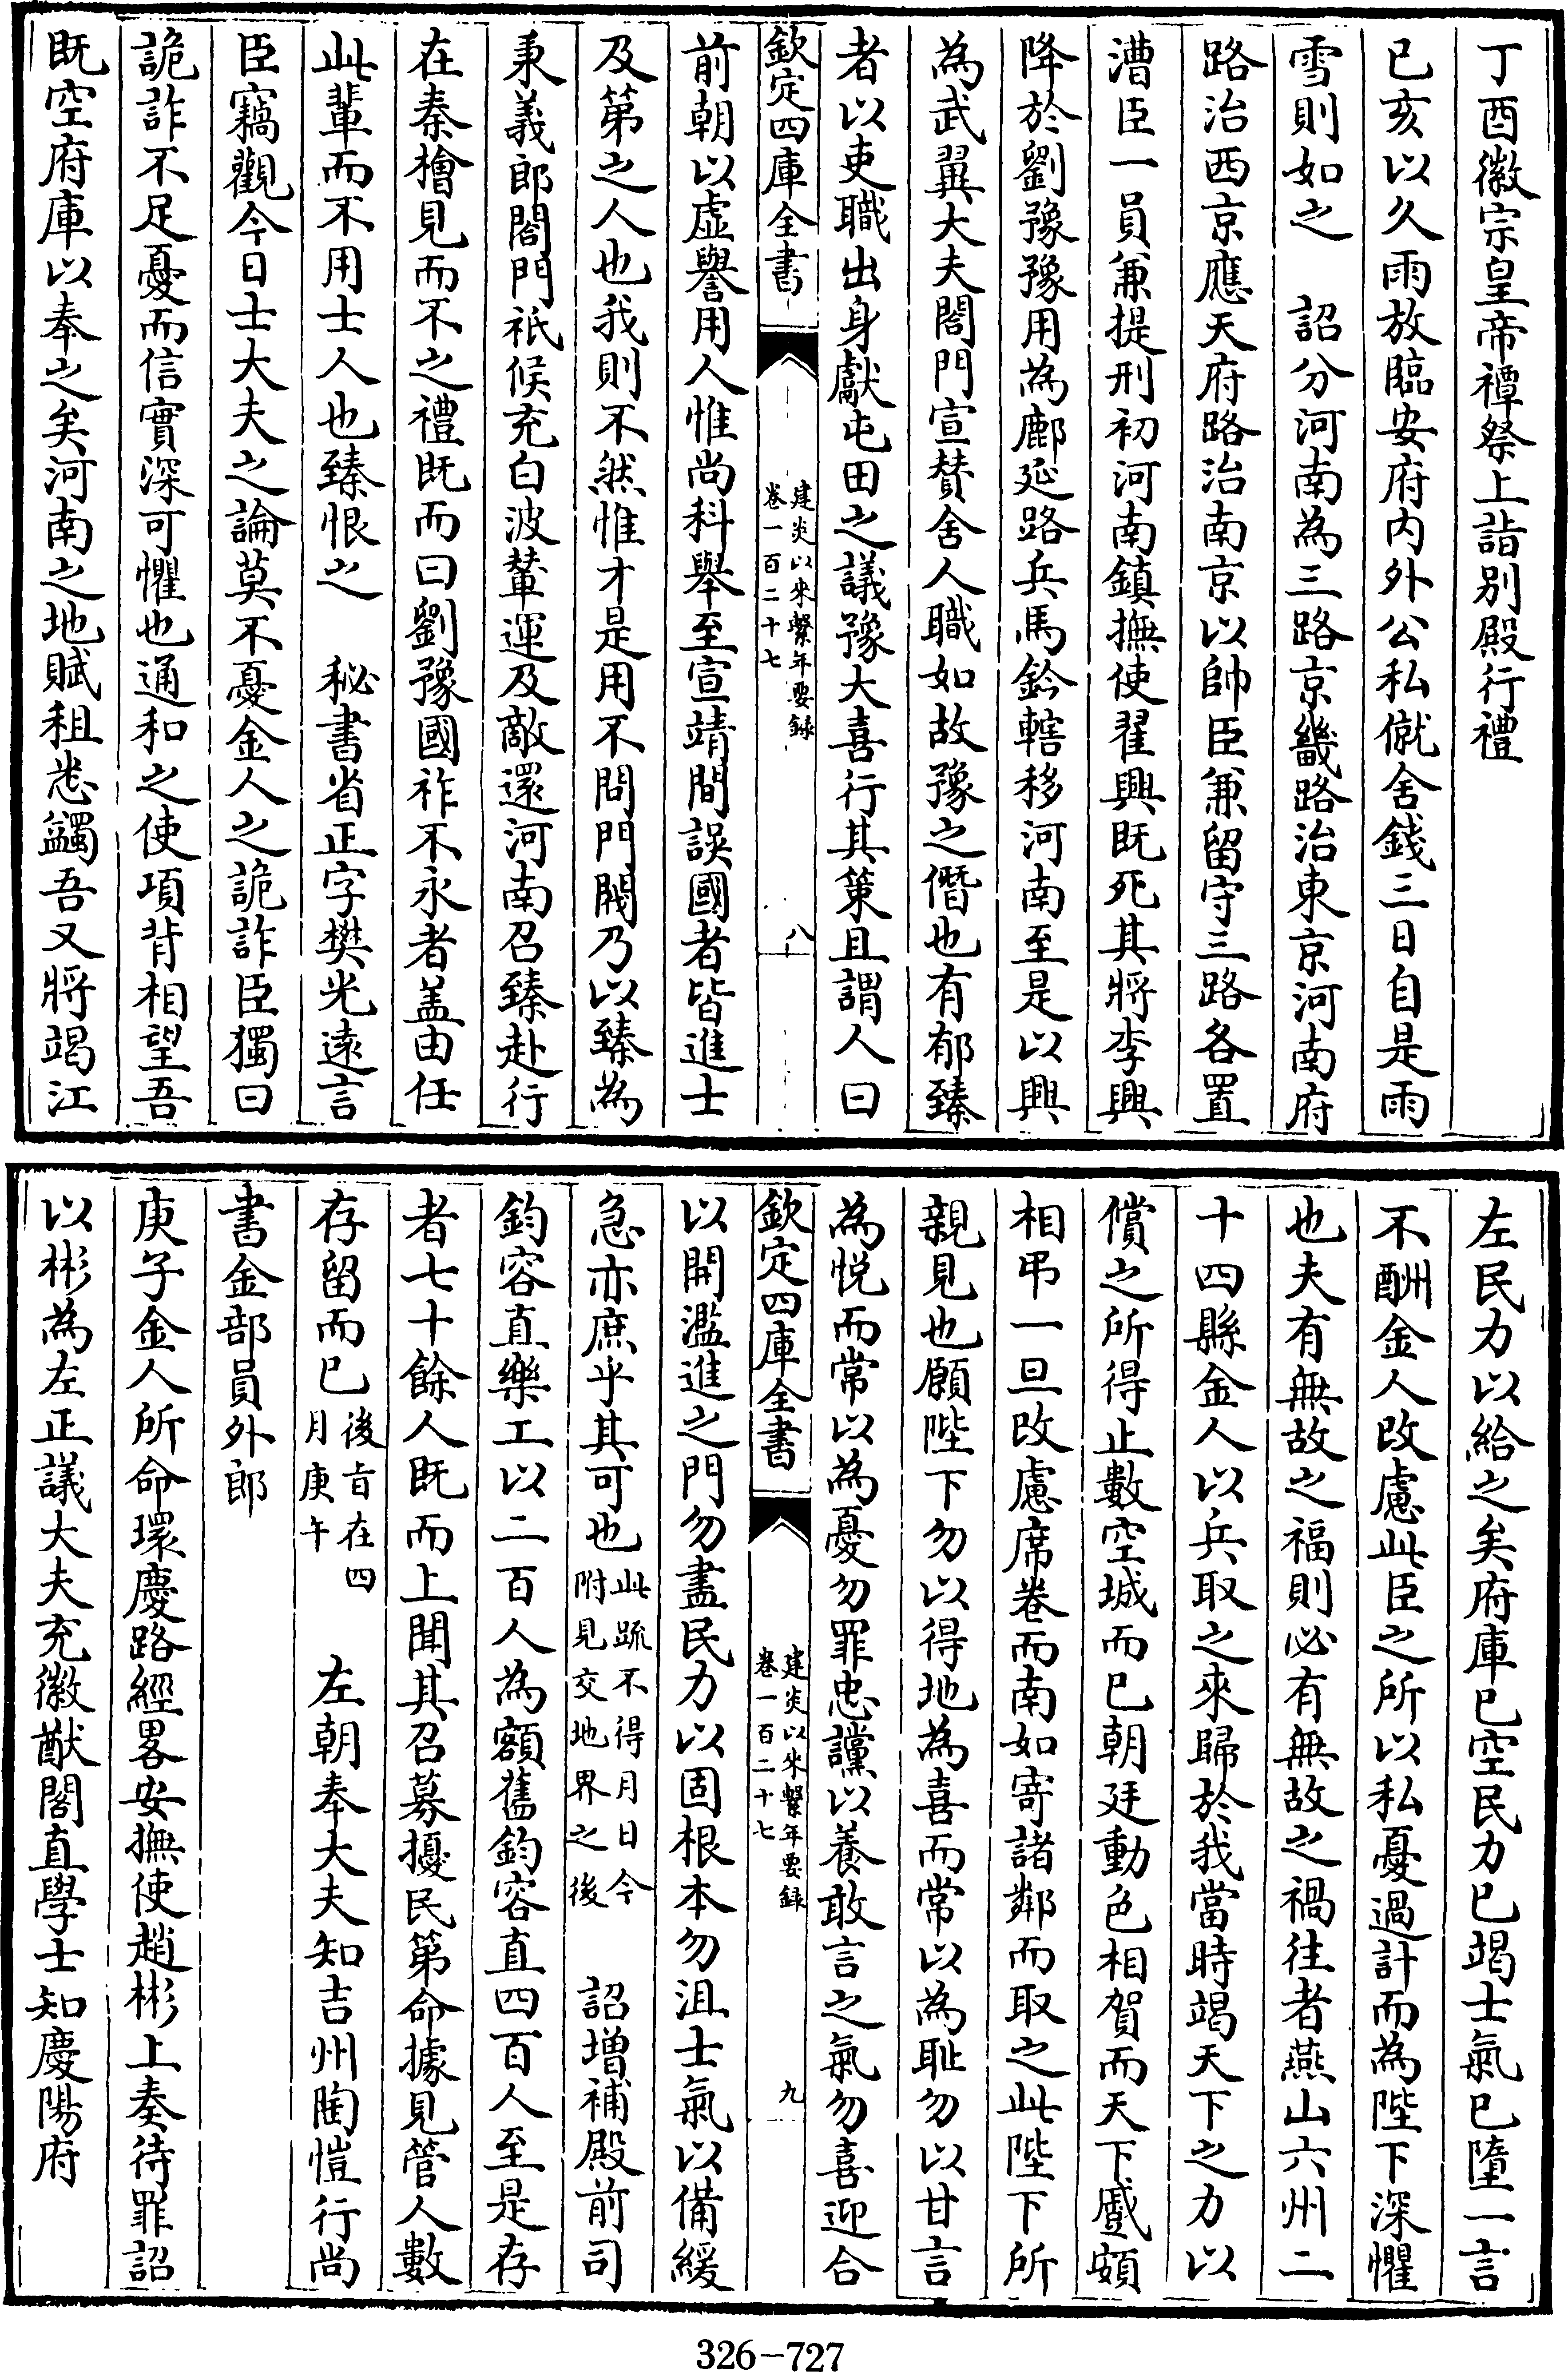 丁酉徽宗皇帝禫祭上詣别殿行禮
已亥以久雨放臨安府内外公私僦舍錢三日自是雨
雪則如之　詔分河南為三路京畿路治東京河南府
路治西京應天府路治南京以帥臣兼留守三路各置
漕臣一員兼提刑初河南鎮撫使翟興既死其將李興
降於劉豫豫用為鄜延路兵馬鈐轄移河南至是以興
為武翼大夫閤門宣賛舍人職如故豫之僭也有郁臻
者以吏職出身獻屯田之議豫大喜行其策且謂人曰
欽定四庫全書
建炎以來繫年要録
卷一百二十七
八
前朝以虚譽用人惟尚科舉至宣靖間誤國者皆進士
及第之人也我則不然惟才是用不問門閥乃以臻為
秉義郎閤門祇候充白波輦運及敵還河南召臻赴行
在秦檜見而不之禮既而曰劉豫國祚不永者盖由任
此輩而不用士人也臻恨之　秘書省正字樊光遠言
臣竊觀今日士大夫之論莫不憂金人之詭詐臣獨曰
詭詐不足憂而信實深可懼也通和之使項背相望吾
既空府庫以奉之矣河南之地賦租悉蠲吾又將竭江
左民力以給之矣府庫已空民力已竭士氣已墮一言
不酬金人改慮此臣之所以私憂過計而為陛下深懼
也夫有無故之福則必有無故之禍往者燕山六州二
十四縣金人以兵取之來歸於我當時竭天下之力以
償之所得止數空城而已朝廷動色相賀而天下蹙頞
相弔一旦改慮席卷而南如寄諸鄰而取之此陛下所
親見也願陛下勿以得地為喜而常以為恥勿以甘言
為悦而常以為憂勿罪忠讜以養敢言之氣勿喜迎合
欽定四庫全書
建炎以來繫年要録
卷一百二十七
九
以開濫進之門勿盡民力以固根本勿沮士氣以備緩
急亦庶乎其可也此疏不得月日今附見交地界之後　詔增補殿前司
鈞容直樂工以二百人為額舊鈞容直四百人至是存
者七十餘人既而上聞其召募擾民第命據見管人數
存留而已後旨在四月庚午　左朝奉大夫知吉州陶愷行尚
書金部員外郎
庚子金人所命環慶路經畧安撫使趙彬上奏待罪詔
以彬為左正議大夫充徽猷閣直學士知慶陽府
326-727